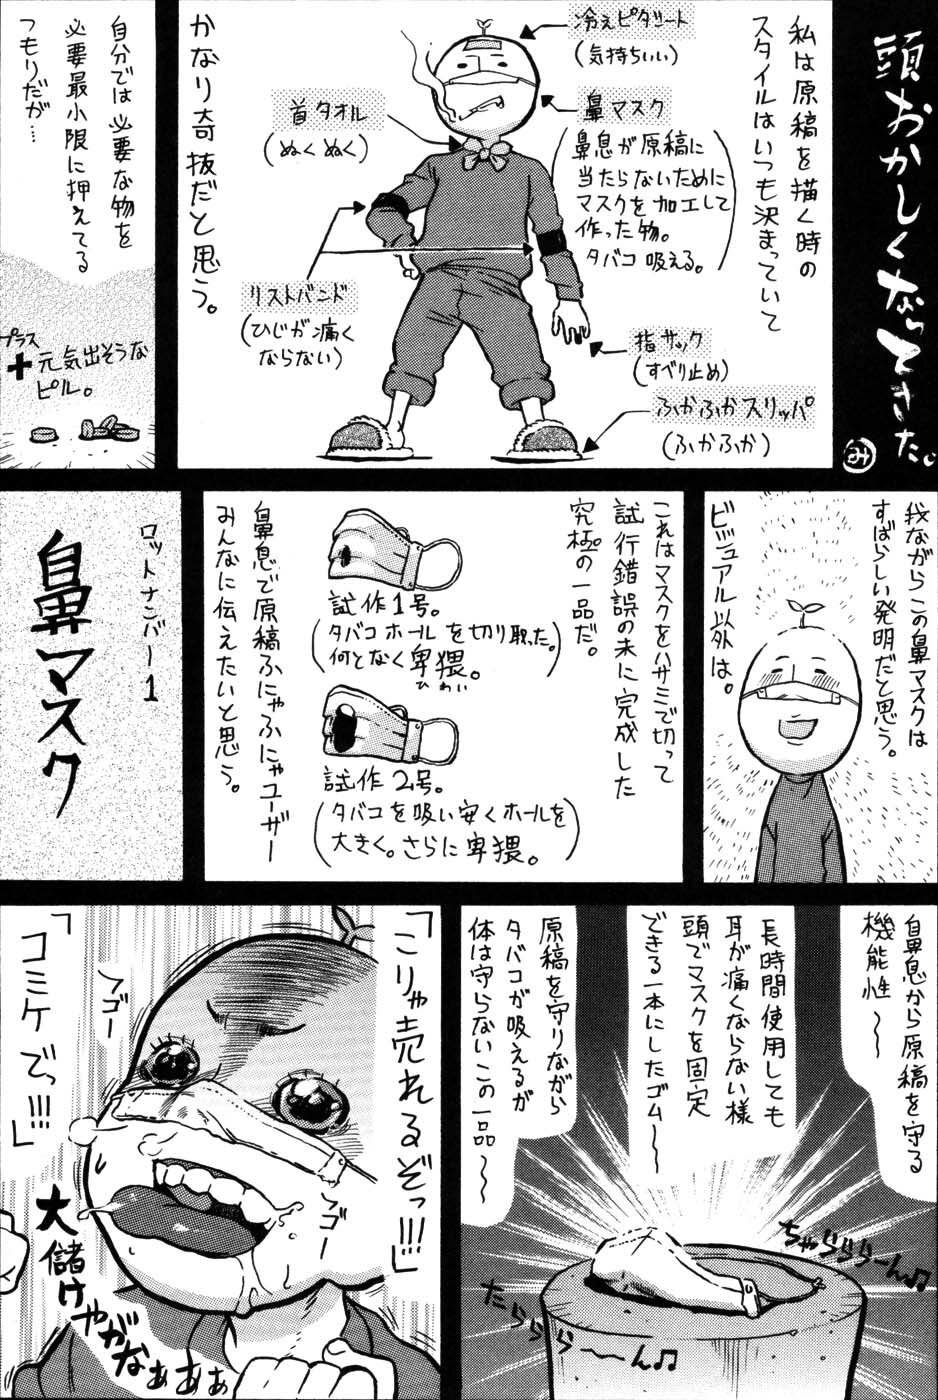 頭おかしくなってきた。
み
私は原稿を描く時の
スタイルはいつも決まっていて
冷えピタシート
(気持ちいい)
鼻マスク
(鼻息が原稿に
当たらないために
マスクを加工して
作った物。
タバコ吸える。)
首タオル
(ぬくぬく)
リストバンド
(ひじが痛く
ならない)
指サック
(すべり止め)
ふかふかスリッパ
(ふかふか)
かなり奇抜だと思う。
自分では必要な物を
必要最小限に押えてる
つもりだが…
プラス
+元気出そうな
ピル。
我ながらこの鼻マスクは
すばらしい発明だと思う。
ビジュアル以外は。
これはマスクをハサミで切って
試行錯誤の末に完成した
究極の一品だ。
試作1号。
(タバコホールを切り取った。
何となく卑猥。)
ひわい
試作2号。
(タバコを吸い安くホールを
大きく。さらに卑猥。)
鼻息で原稿ふにゃふにゃユーザー
みんなに伝えたいと思う。
ロットナンバー1
鼻マスク
鼻息から原稿を守る
機能性〜
長時間使用しても
耳が痛くならない様
頭でマスクを固定
できる一本にしたゴム〜
原稿を守りながら
タバコが吸えるが
体は守らないこの一品〜
ちゃらららーん♫
たらららーん♫
「こりゃ売れるぞっ!!!」
「コミケでっ!!!」
フゴー
フゴー
大儲けやがなぁぁぁ